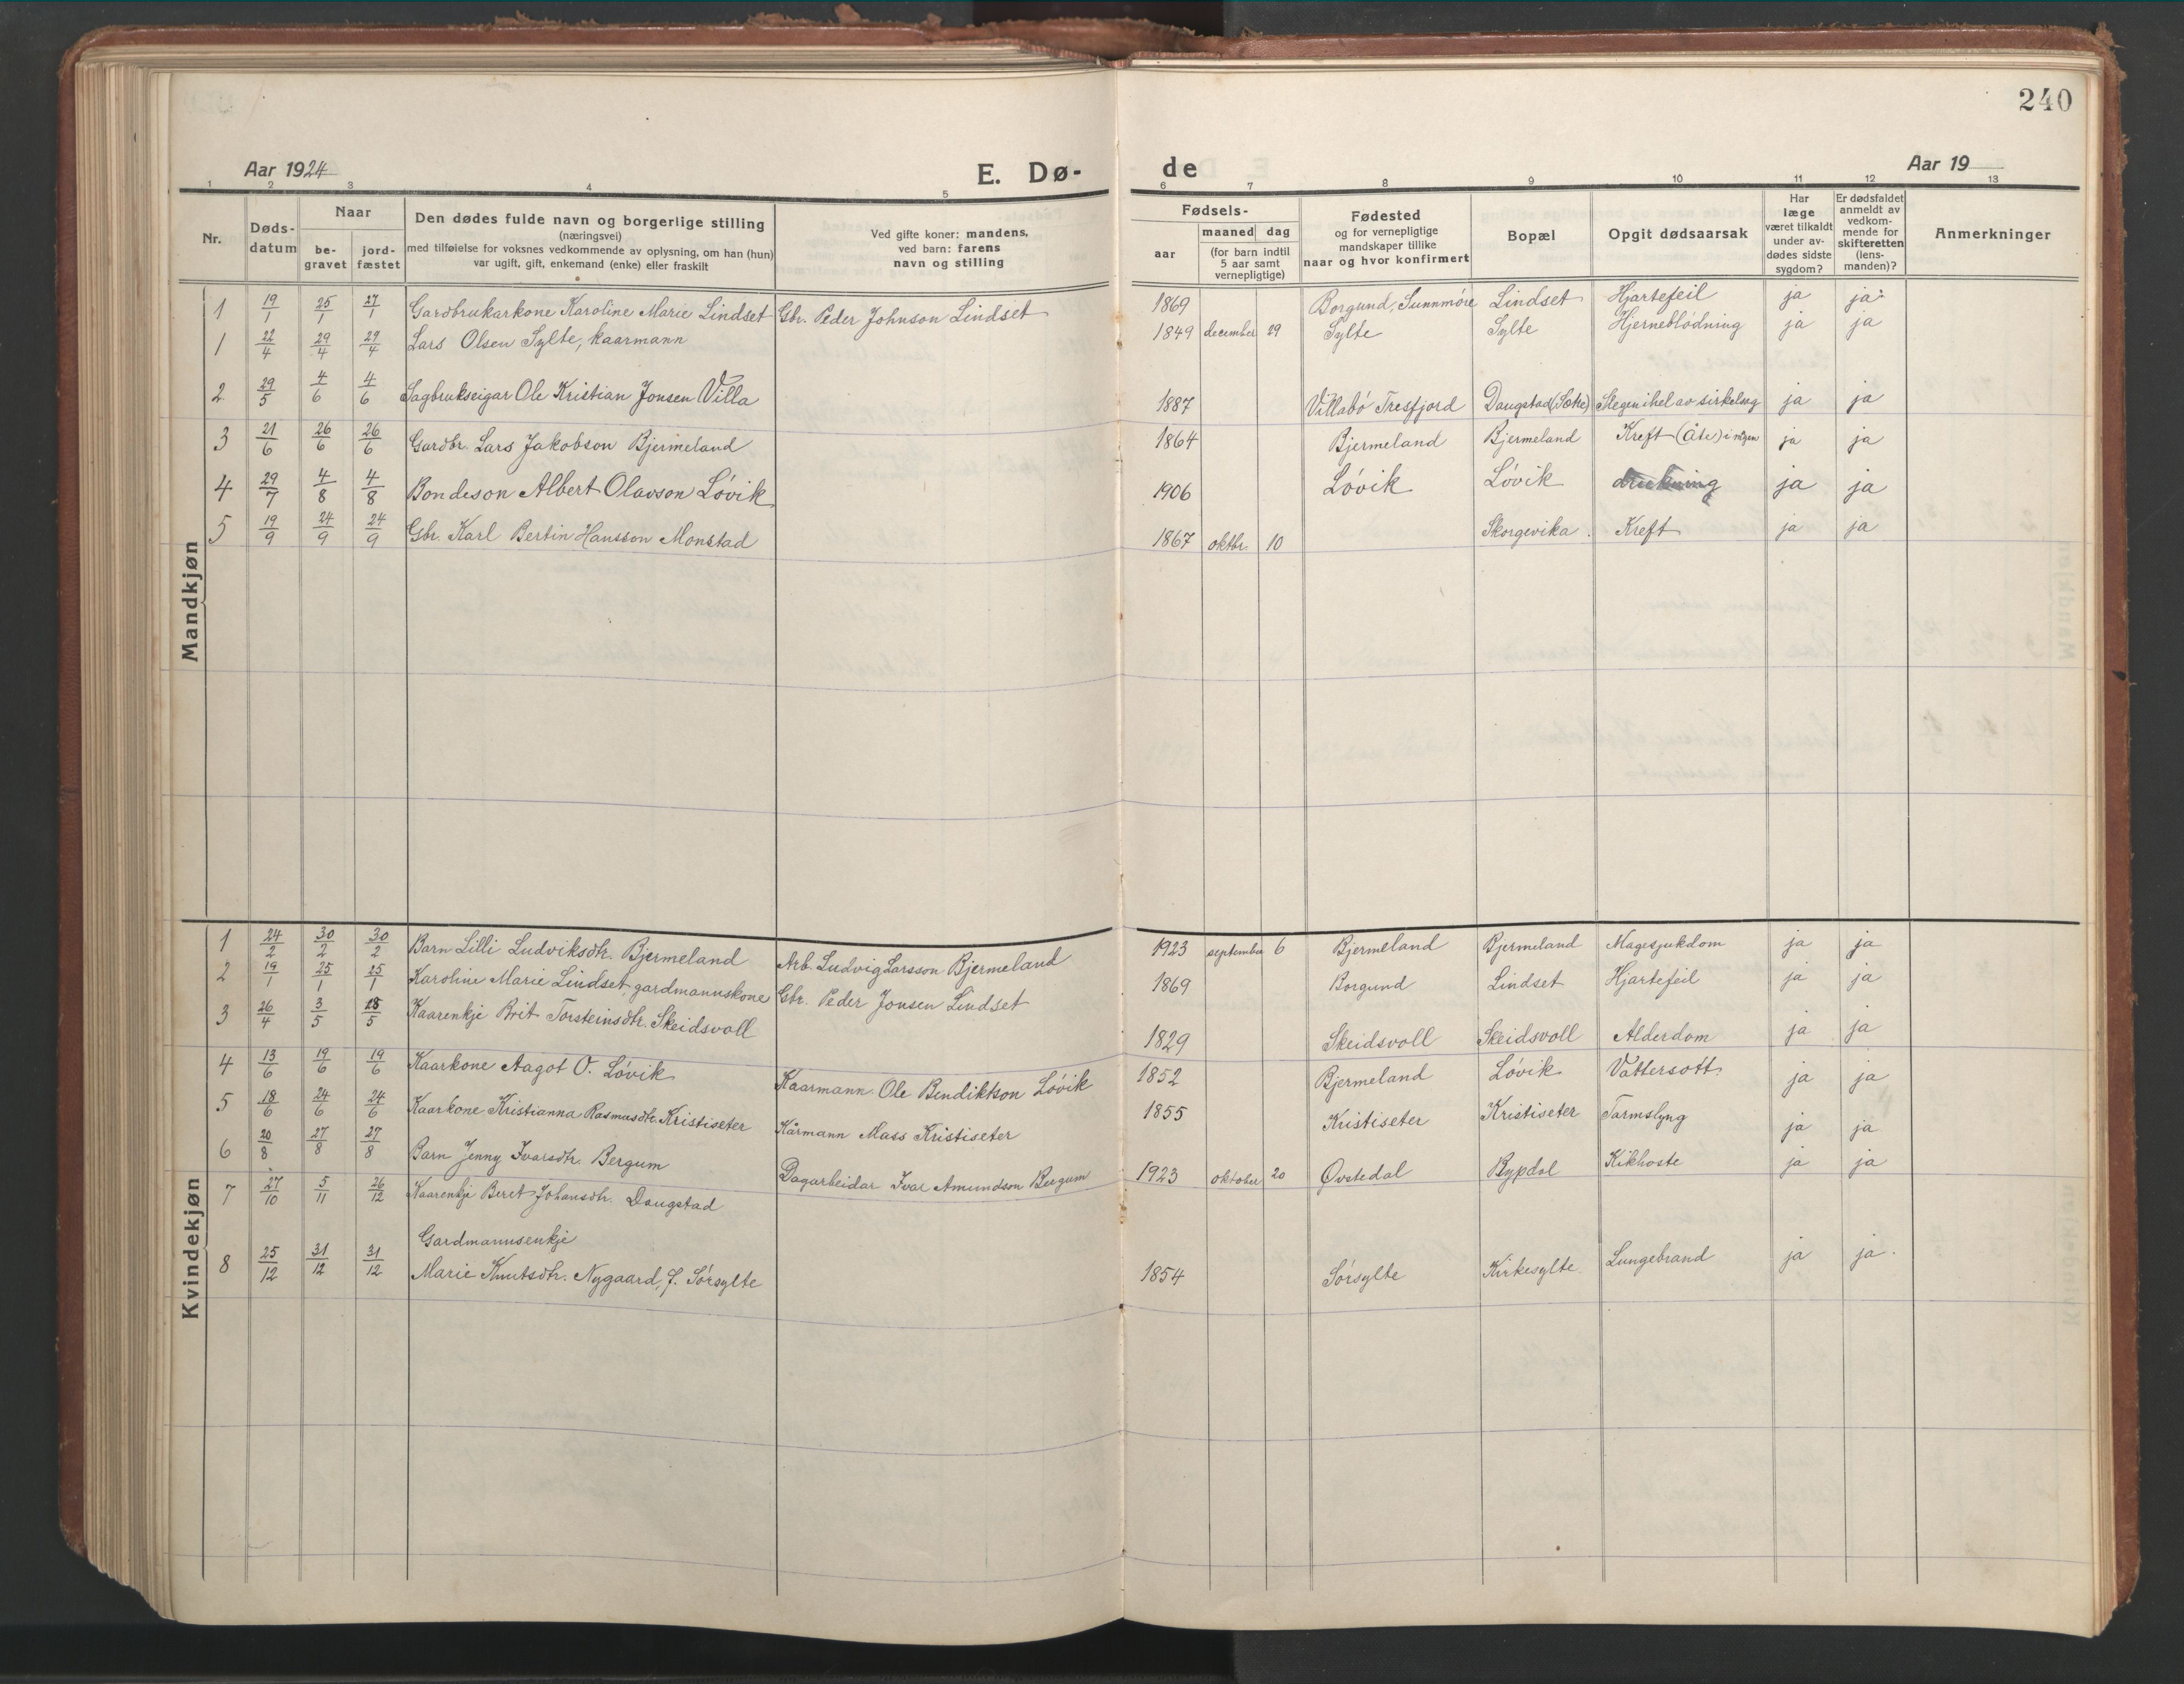 240
Aar 1924 E. Dø- de Aar 19
1 2 3 4 5 6 7 8 9 10 11 12 13
Nr.
Døds-
datum
Naar
be-
gravet
jord-
fæstet
Den dødes fulde navn og borgerlige stilling
(næringsvei)
med tilføielse for voksnes vedkommende av oplysning, om han (hun)
var ugift, gift, enkemand (enke) eller fraskilt
Ved gifte koner: mandens,
ved barn: farens
navn og stilling
Fødsels-
aar
maaned dag
(for barn indtil
5 aar samt
vernepligtige)
Fødested
og for vernepligtige
mandskaper tillike
naar og hvor konfirmert
Bopæl
Opgit dødsaarsak
Har
læge
været tilkaldt
under av-
dødes sidste
sygdom?
Er dødsfaldet
anmeldt av
vedkom-
mende for
skifteretten
(lens-
manden)?
Anmerkninger
Mandkjøn
1 19/1 25/1 27/1 Gardbrukarkone Karoline Marie Lindset Gbr. Peder Johnson Lindset 1869 Borgund, Sunnmøre Lindset Hjartefeil ja ja
1 22/4 29/4 29/4 Lars Olsen Sylte, kaarmann 1849 december 29 Sylte Sylte Hjerneblödning ja ja
2 29/5 4/6 4/6 Sagbrukseigar Ole Kristian Jonsen Villa 1887 Villabó Tresfjord Daugstad (Sætre) Slegen ihel av sirkelsag ja ja
3 21/6 26/6 26/6 Gardbr. Lars Jakobson Bjermeland 1864 Bjermeland Bjermeland Kreft (Åte) i mågen ja ja
4 29/7 4/8 4/8 Bondeson Albert Olavson Lóvik 1906 Lóvik Lóvik drukning ja ja
5 19/9 24/9 24/9 Gbr. Karl Bertin Hansson Monstad 1867 oktbr. 10 Skorgevika. Kreft ja ja
Kvindekjøn
1 24/2 30/2 30/2 Barn Lilli Ludviksdtr. Bjermeland Arb. Ludvig Larsson Bjermeland 1923 september 6 Bjermeland Bjermeland Magesjukdom ja ja
2 19/1 25/1 25/1 Karoline Marie Lindset, gardmannskone Gbr. Peder Jonsen Lindset 1869 Borgund Lindset Hjartefeil ja ja
3 26/4 3/5 18/5 Kaarenkje Brit Torsteinsdtr. Skeidsvoll 1829 Skeidsvoll Skeidsvoll Alderdom ja ja
4 13/6 19/6 19/6 Kaarkone Aagot O. Lóvik Kaarmann Ole Bendiktson Lóvik 1852 Bjermeland Lóvik Vattersott. ja ja
5 18/6 24/6 24/6 Kaarkone Kristianna Rasmusdtr. Kristiseter Kårmann Mass Kristiseter 1855 Kristiseter Kristiseter Tarmslyng ja ja
6 20/8 27/8 27/8 Barn Jenny Ivarsdtr. Bergum Dagarbeidar Ivar Amundson Bergum 1923 oktober 20 Øvstedal Rypdal Kikhoste ja ja
7 27/10 5/11 26/12 Kaarenkje Beret Johansdtr. Daugstad
Gardmannsenkje
8 25/12 31/12 31/12 Marie Knutsdtr. Nygaard, f. Sórsylte 1854 Sórsylte Kirkesylte. Lungebrand ja ja.